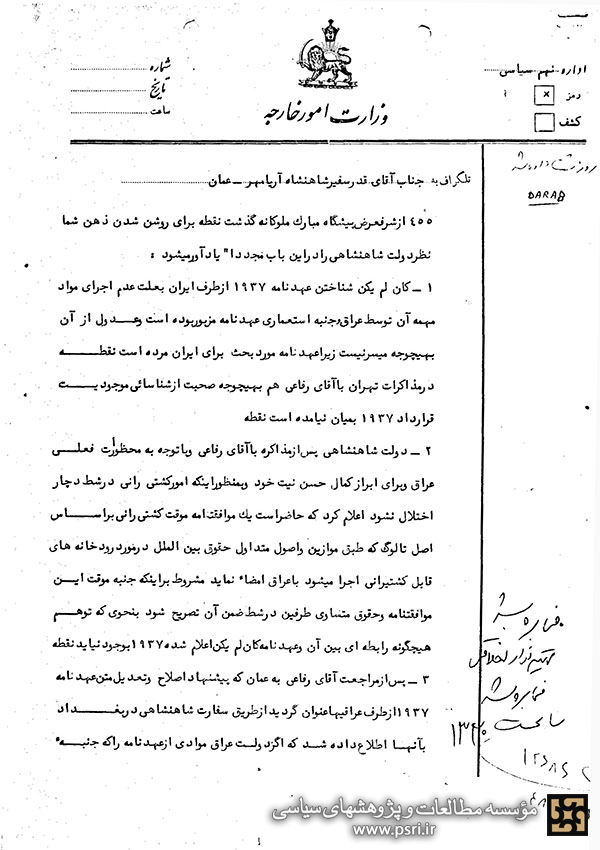 اداره نهم سیاسی
رمز
کشف
شماره
تاریخ
ساعت
وزارت امور خارجه
DARAB
تلگراف به جناب آقای قدر سفیر شاهنشاه آریامهر ـ عمان
٤٥٥ از شرفعرض پیشگاه مبارک ملوکانه گذشت نقطه برای روشن شدن ذهن شما
نظر دولت شاهنشاهی را در این باب مجددا" یادآور میشود :
١ ـ کان لم یکن شناختن عهدنامه ١٩٣٧ از طرف ایران بعلت عدم اجرای مواد
مهمه آن توسط عراق و جنبه استعماری عهدنامه مزبور بوده است وعدول از آن
بهیچوجه میسر نیست زیرا عهدنامه مورد بحث برای ایران مرده است نقطه
در مذاکرات تهران با آقای رفاعی هم بهیچوجه صحبت از شناسائی موجودیت
قرارداد ١٩٣٧ بمیان نیامده است نقطه
٢ ـ دولت شاهنشاهی پس از مذاکره با آقای رفاعی وبا توجه به محظورت فعلی
عراق وبرای ابراز کمال حسن نیت خود وبمنظور اینکه امور کشتی رانی در شط دچار
اختلال نشود اعلام کرد که حاضر است یک موافقتنامه موقت کشتی رانی بر اساس
اصل تالوگ که طبق موازین واصول متداول حقوق بین الملل در مورد رودخانه های
قابل کشتیرانی اجرا میشود با عراق امضاء نماید مشروط بر اینکه جنبه موقت این
موافقتنامه وحقوق متساوی طرفین در شط ضمن آن تصریح شود بنحوی که توهم
هیچگونه رابطه ای بین آن وعهدنامه کان لم یکن اعلام شده ١٩٣٧ بوجود نیاید نقطه
٣ ـ پس از مراجعت آقای رفاعی به عمان که پیشنهاد اصلاح وتعدیل متن عهدنامه
١٩٣٧ از طرف عراقیها عنوان گردید از طریق سفارت شاهنشاهی در بغداد
بآنها اطلاع داده شد که اگر دولت عراق موادی از عهدنامه را که جنبه
ساعت ١٣٢٥
موسسه مطالعات و پژوهشهای سیاسی
www.psri.ir